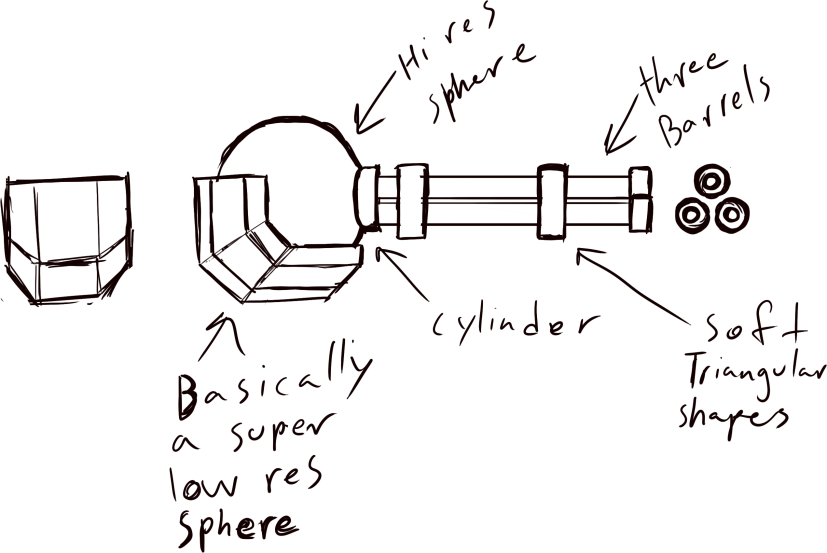 Hi res
sphere
three
Barrels
cylinder
soft
Triangular
shapes
Basically
a super
low res
sphere